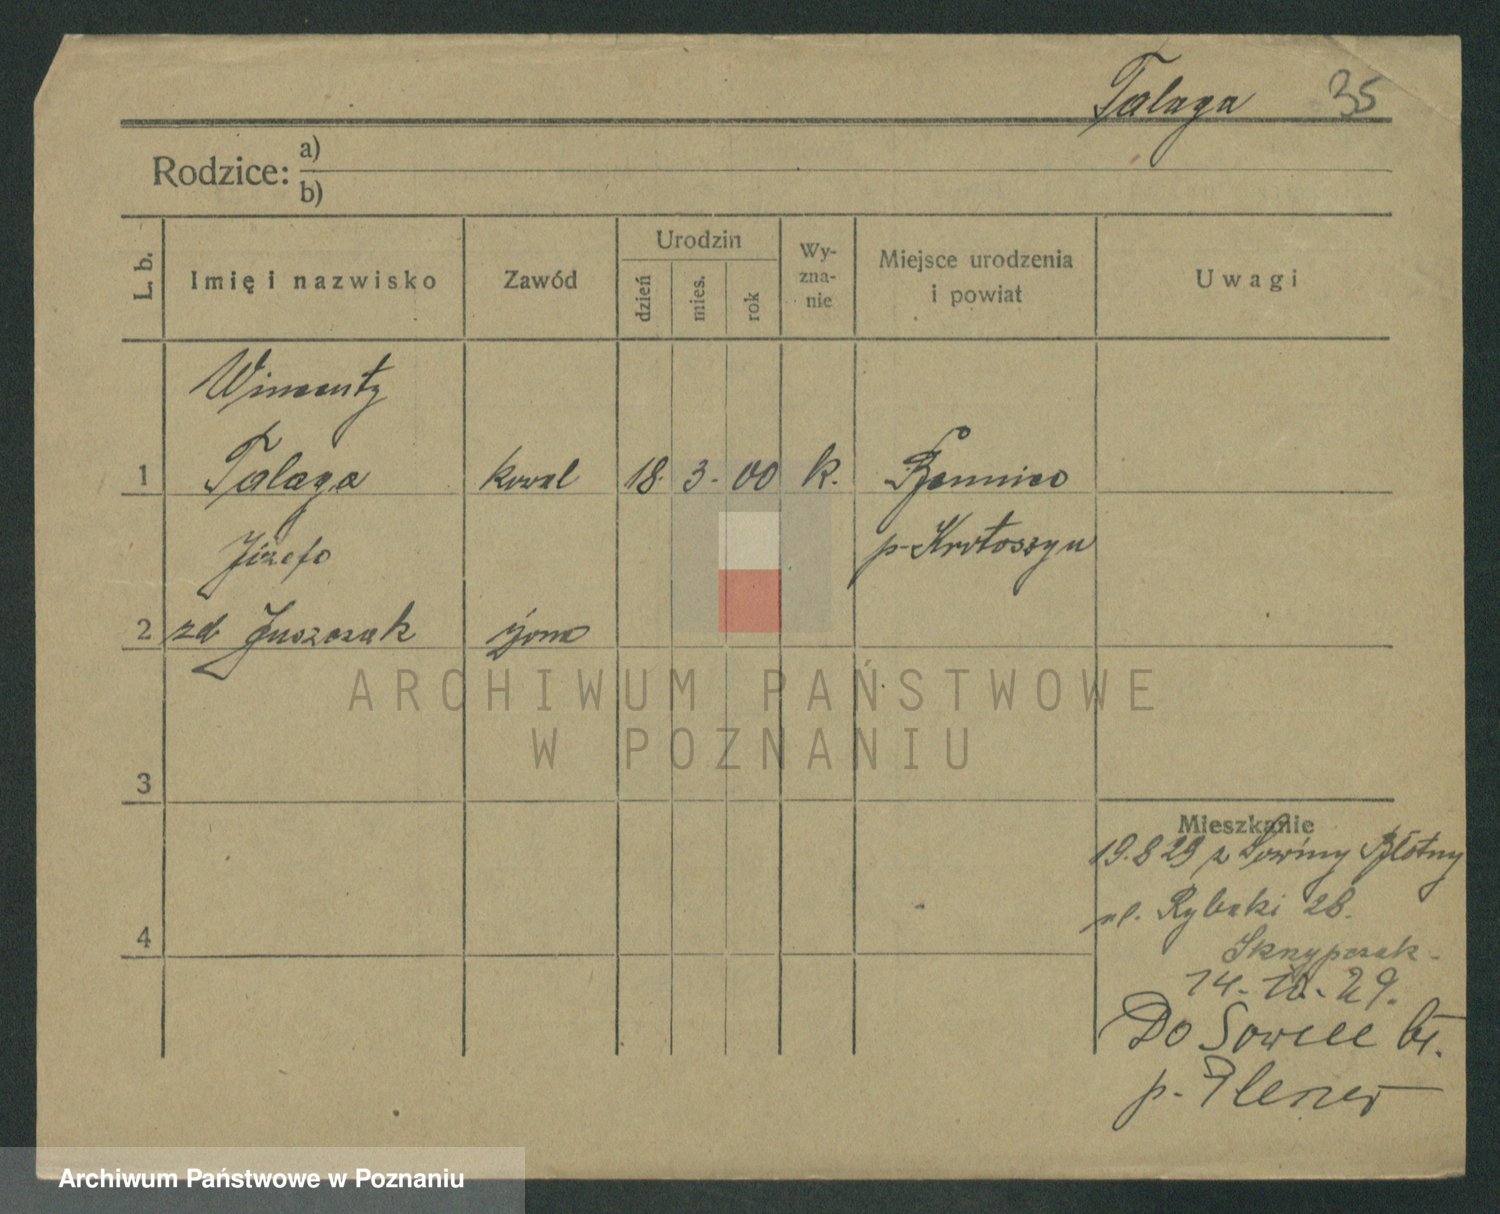 Talaga 35
Rodzice: a)
b)
L. b. Imię i nazwisko Zawód Urodzin dzień mies. rok Wy-zna-nie Miejsce urodzenia i powiat Uwagi
Wincenty
1 Talaga kowal 18. 3. 00 k.
Józefa p. Krotoszyn
2 zd Juszczak żona
ARCHIWUM PAŃSTWOWE
W POZNANIU
3
Mieszkanie
19.8 29 z Sowiny Błotny
ul. Rybaki 28.
4
Skrzypczak
14-10-29.
Do Sowiee bł.
p.
Archiwum Państwowe w Poznaniu